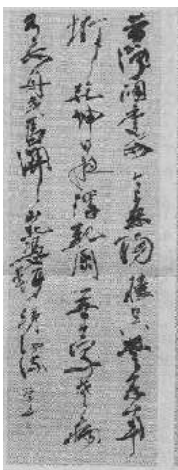 昔聞洞庭水今上岳陽樓吳楚東南
坼乾坤日夜浮親朋無一字老病
有孤舟戎馬關山北憑軒涕泗流